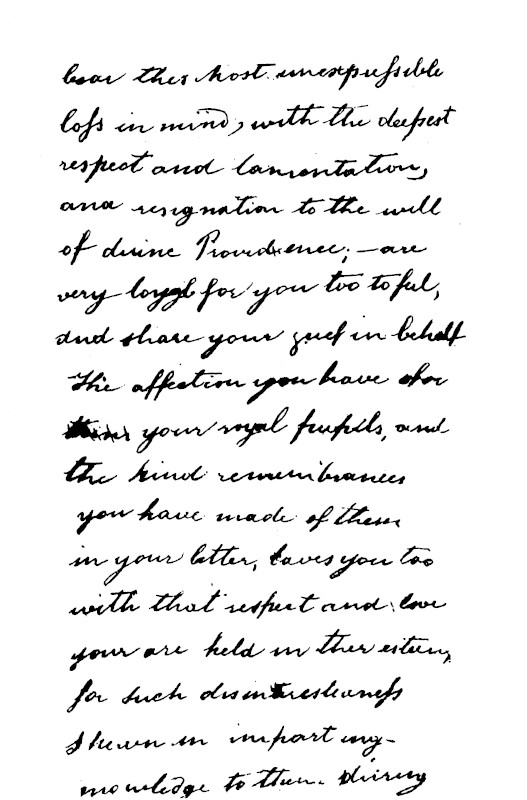 bear this most unexpressible
loss in mind, with the deepest
respect and lamentation,
and resignation to the will
of divine Providence; — are
very loyal for you too to ful,
and share your grief in behalf
The affection you have
your royal pupils, and
the kind remembrances
you have made of them
in your letter, loves you too
with that respect and love
your are held in their esteem,
for such disinterestedness
shewn in imparting
knowledge to them. During